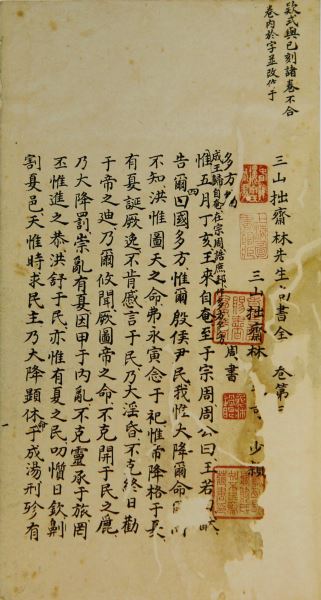 款式與已刻諸卷不合
卷内於字並改作于
三山拙齋林先生尚書全 卷第
三山拙齋林 少穎
多方 周書
成王歸自奄在宗周誥庶邦
惟五月丁亥王來自奄至于宗周周公曰王若曰
告爾四國多方惟爾殷侯尹民我惟大降爾命
不知洪惟圖天之命弗永寅念于祀惟帝降格于
有夏誕厥逸不肯慼言于民乃大淫昏不克終日勸
于帝之迪乃爾攸聞厥圖帝之命不克開于民之麗
乃大降罰崇亂有夏因甲于内亂不克靈承于旅罔
丕惟進之恭洪舒于民亦惟有夏之民叨懫日欽劓
割夏邑天惟時求民主乃大降顯休命于成湯刑殄有